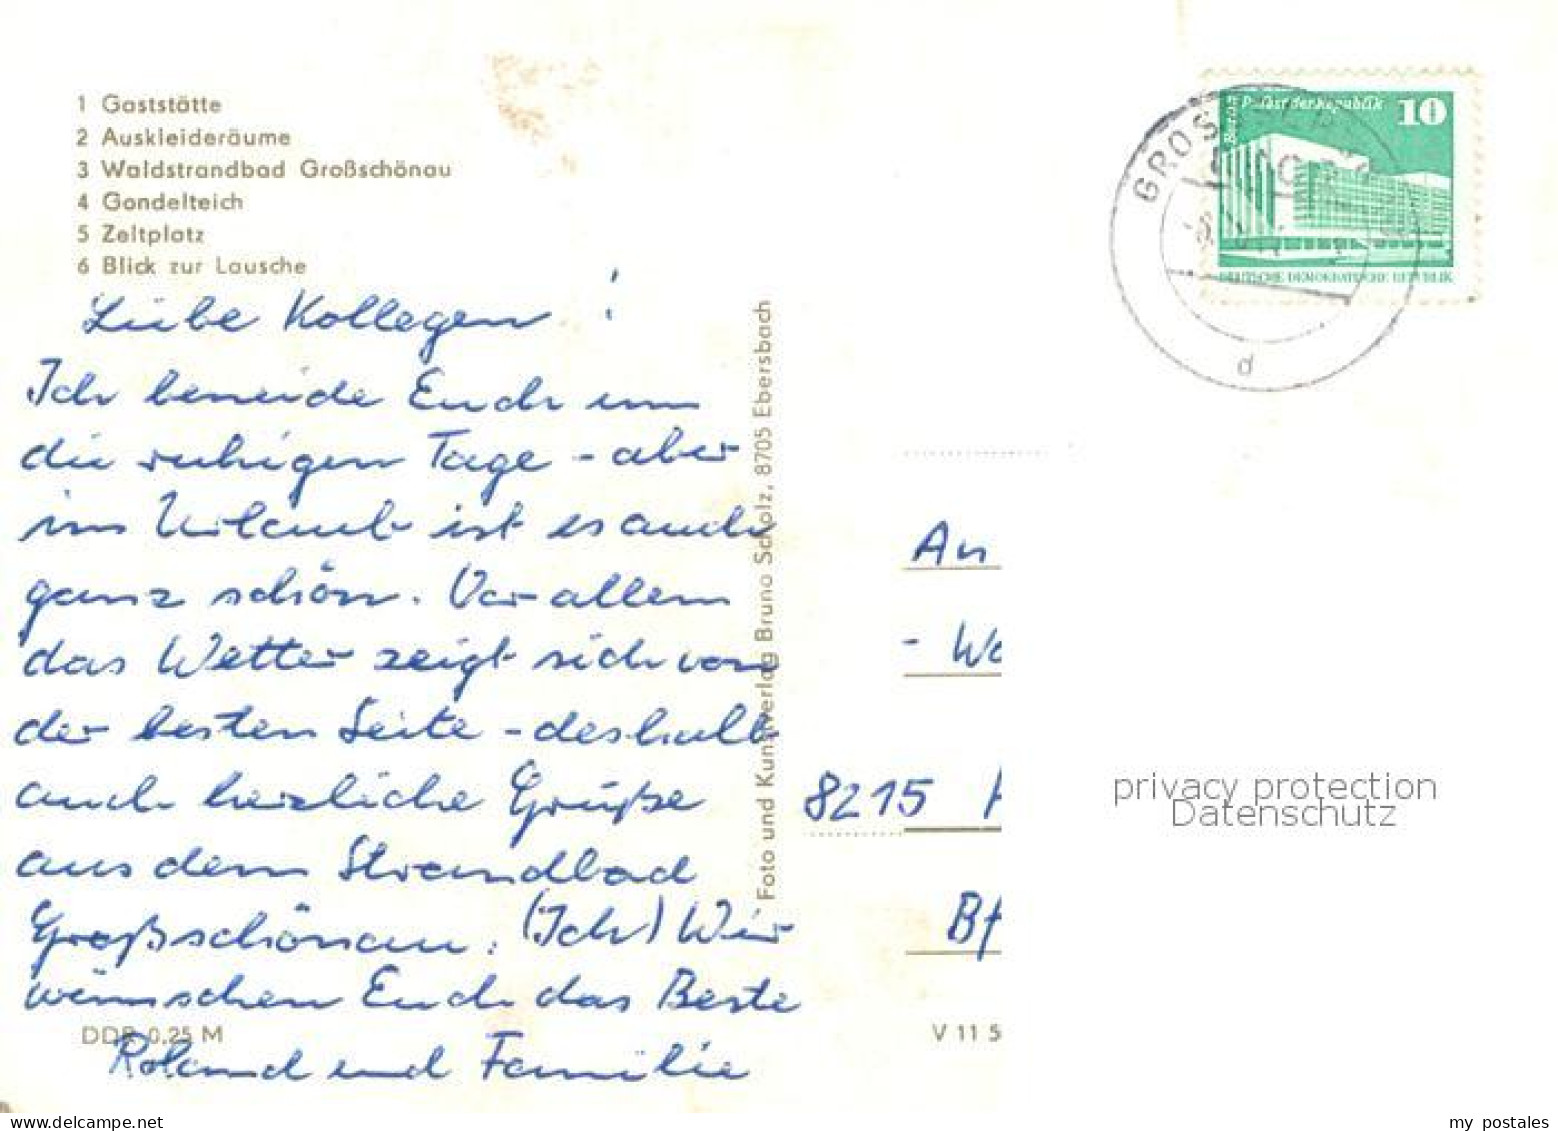 1 Gaststätte
2 Auskleideräume
3 Waldstrandbad Großschönau
4 Gondelteich
5 Zeltplatz
6 Blick zur Lausche
Liebe Kollegen!
Ich beneide Euch um
die ruhigen Tage - aber
im Urlaub ist es auch
ganz schön. Vor allem
das Wetter zeigt sich von
der besten Seite - deshalb
auch herzliche Grüße
aus dem Strandbad
Großschönau. (Ich) Wir
wünschen Euch das Beste
Roland und Familie
DDR 0.25 M
Foto und Kunstverlag Bruno Scholz, 8705 Ebersbach
V 11 5
Berlin
Palast der Republik
10
DEUTSCHE DEMOKRATISCHE REPUBLIK
d
An
8215
privacy protection
Datenschutz
my postales